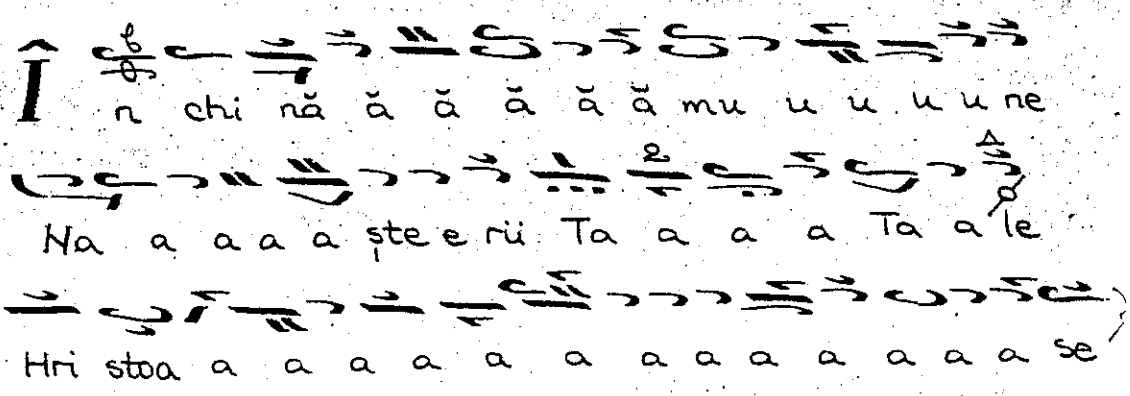 În chi nă ă ă ă ă ă mu u u u u ne
Na a a a a ște e rii Ta a a a Ta a le
Hri stoa a a a a a a a a a a a a se